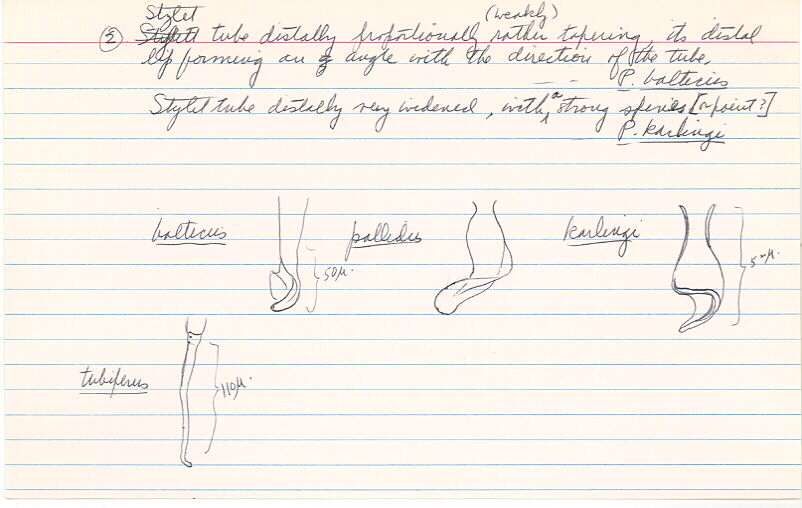 Stylet (weakly)
② Stylett tube distally proportionally rather tapering, its distal
lip forming an angle with the direction of the tube.
P. balticus
Stylet tube distally very widened, with a strong spines [or point?]
P. karlingi
balticus pallidus karlingi
50µ. 5-µ.
tubiferus 110µ.